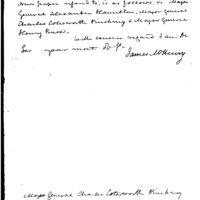 News paper referred to, is as follows, viz Major
General Alexander Hamilton, Major General
Charles Cotesworth Pinckney & Major General
Henry Knox.
With sincere regard I am Dr
Sir your most
James McHenry
Major General Charles Cotesworth Pinckney